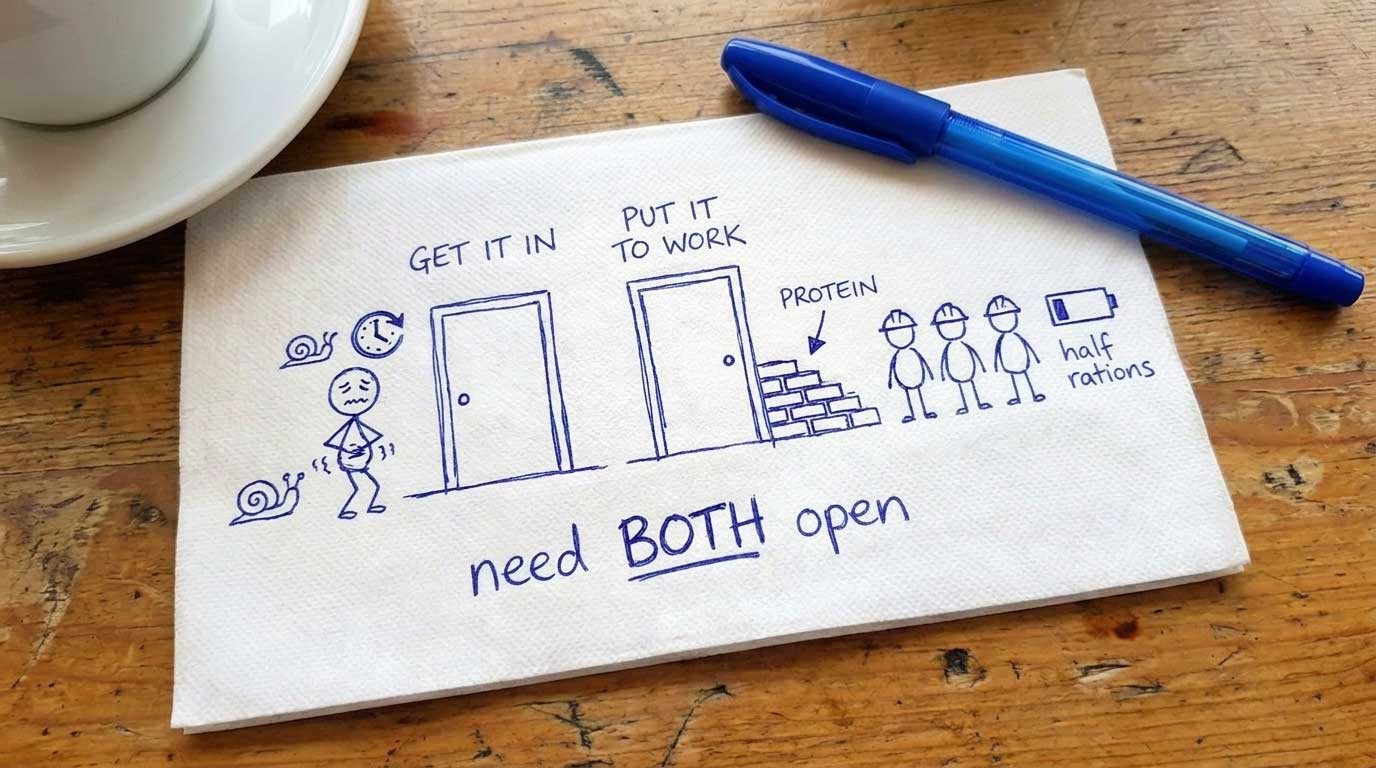 GET IT IN
PUT IT
TO WORK
PROTEIN
half
rations
need BOTH open